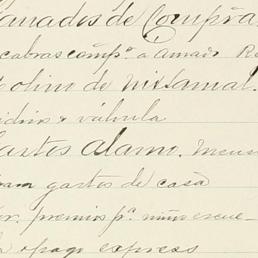 anades de Compra
cabras comp.ª a Amado R
olino de nixtamal.
idrio y válvula
Gastos Alamo. Mens
para gastos de casa
or. premios p.ª niños escue-
a o pago expreso